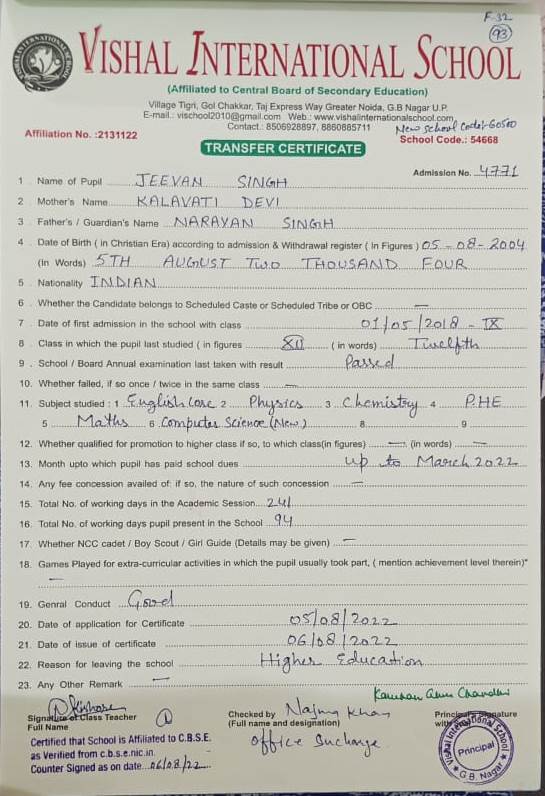 F-32
93
VISHAL INTERNATIONAL SCHOOL
(Affiliated to Central Board of Secondary Education)
Village Tigri, Gol Chakkar, Taj Express Way Greater Noida, G.B Nagar U.P.
E-mail.: vischool2010@gmail.com Web.: www.vishalinternationalschool.com
Contact.: 8506928897, 8860885711
New School Code:-60500
Affiliation No. :2131122 School Code.: 54668
TRANSFER CERTIFICATE
Admission No. 4771
1 . Name of Pupil JEEVAN SINGH
2 . Mother's Name KALAVATI DEVI
3 . Father's / Guardian's Name NARAYAN SINGH
4 . Date of Birth ( in Christian Era) according to admission & Withdrawal register ( In Figures ) 05-08-2004
(In Words) 5TH AUGUST TWO THOUSAND FOUR
5 . Nationality INDIAN
6 . Whether the Candidate belongs to Scheduled Caste or Scheduled Tribe or OBC —
7 . Date of first admission in the school with class 01/05/2018 - IX
8 . Class in which the pupil last studied ( in figures XII ( in words) Twelfth
9 . School / Board Annual examination last taken with result Passed
10. Whether failed, if so once / twice in the same class —
11. Subject studied : 1 English Core 2 Physics 3 Chemistry 4 P.HE
5 Maths 6 Computer Science (New) 8 9
12. Whether qualified for promotion to higher class if so, to which class(in figures) — (in words) —
13. Month upto which pupil has paid school dues up to March 2022
14. Any fee concession availed of: if so, the nature of such concession —
15. Total No. of working days in the Academic Session 241
16. Total No. of working days pupil present in the School 94
17. Whether NCC cadet / Boy Scout / Girl Guide (Details may be given) —
18. Games Played for extra-curricular activities in which the pupil usually took part, ( mention achievement level therein)"
—
19. Genral Conduct Good
20. Date of application for Certificate 05/08/2022
21. Date of issue of certificate 06/08/2022
22. Reason for leaving the school Higher Education
23. Any Other Remark —
Signature of Class Teacher Checked by Najma Khan Principal's Signature
Full Name (Full name and designation) with
Office Incharge
Certified that School is Affiliated to C.B.S.E.
as Verified from c.b.s.e.nic.in.
Counter Signed as on date 06/08/22
Vishal International School
Principal
G.B. Nagar